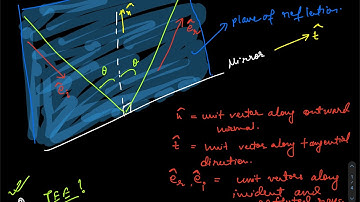 n̂
ê_r
plane of reflection.
Mirror
t̂
ê_i
θ
θ
n̂ = unit vector along outward
normal.
t̂ = unit vector along tangential
direction.
ê_r, ê_i = unit vectors along
incident and
JEE?